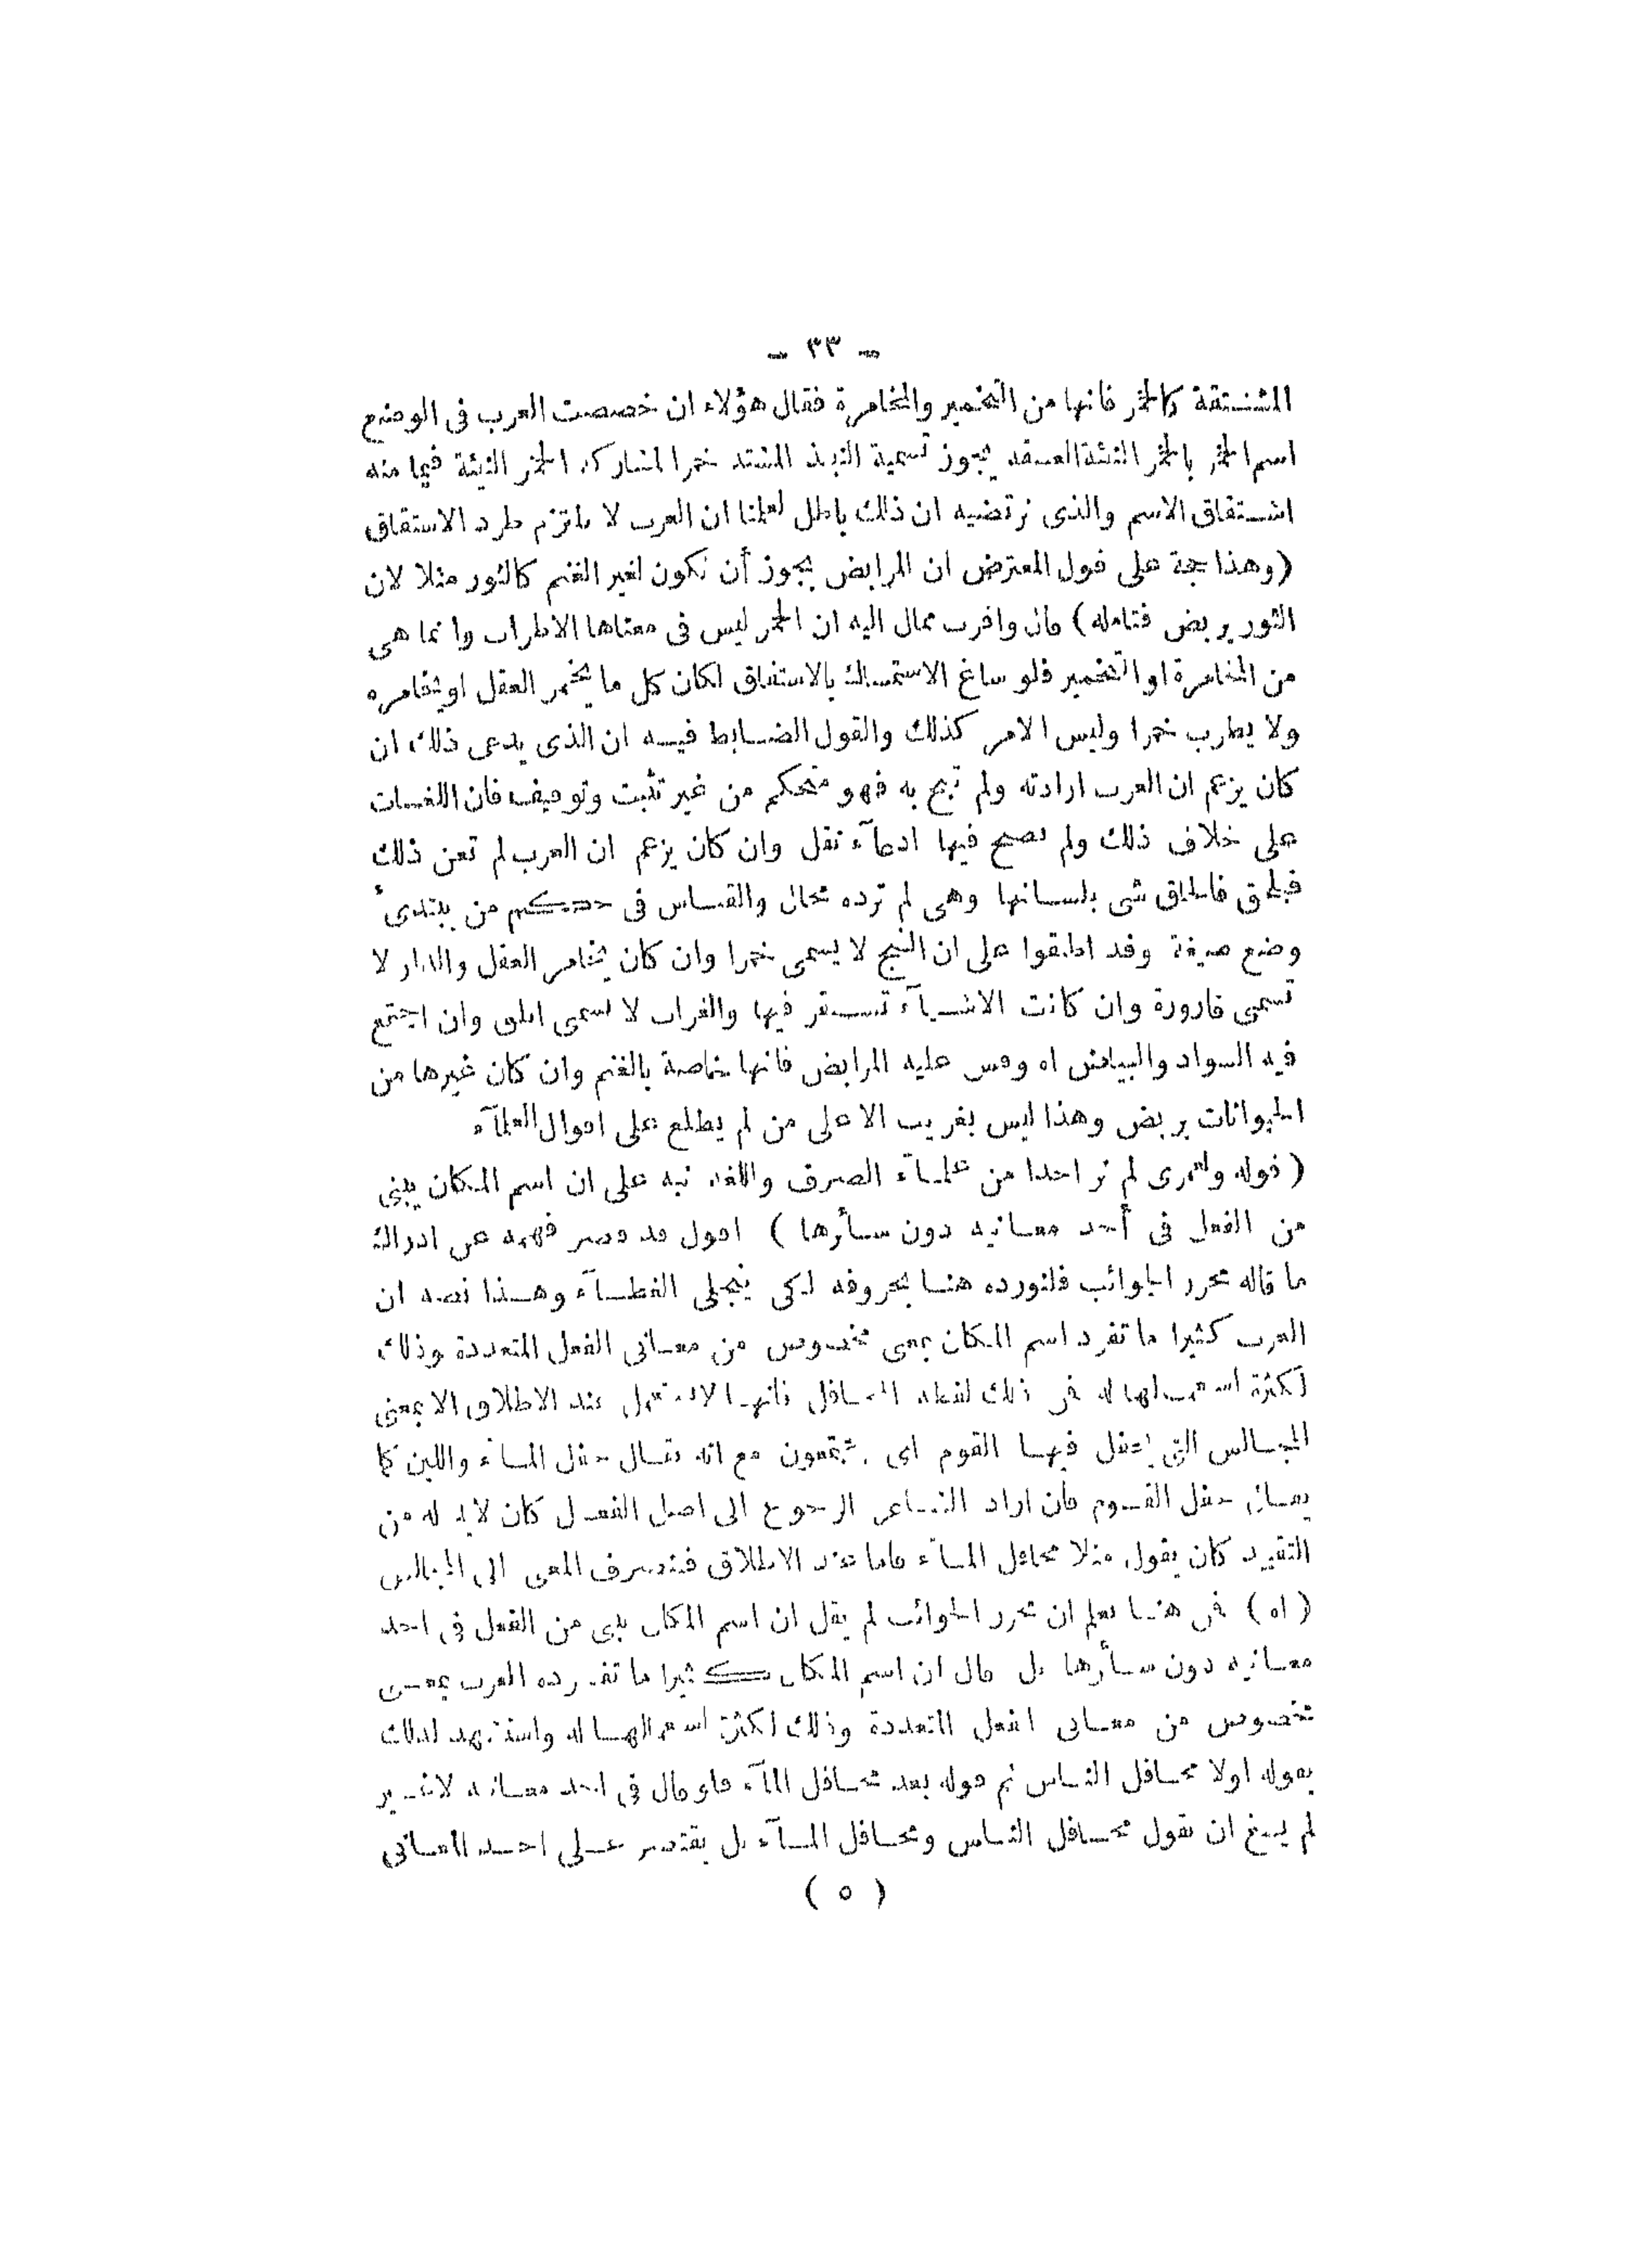 - ٣٣ -
المشتقة كالخمر فانها من التخمير والمخامرة فقال هؤلاء ان خصصت العرب فى الوضع
اسم الخمر بالخمر النيئة العنبية يجوز تسمية النبيذ المشتد خمرا لمشاركته الخمر النيئة فيما منه
اشتقاق الاسم والذى نرتضيه ان ذلك باطل لعلمنا ان العرب لا تلتزم طرد الاشتقاق
(وهذا حجة على قول المعترض ان المرابض يجوز أن تكون لغير الغنم كالثور مثلا لان
الثور يربض فتامله) قال واقرب مثال اليه ان الخمر ليس فى معناها الاطراب وانما هى
من المخامرة او التخمير فلو ساغ الاستمساك بالاشتقاق لكان كل ما يخمر العقل او يخامره
ولا يطرب خمرا وليس الامر كذلك والقول الضابط فيه ان الذى يدعى ذلك ان
كان يزعم ان العرب ارادته ولم تبح به فهو متحكم من غير تثبت وتوقيف فان اللغات
على خلاف ذلك ولم يصح فيها ادعآء نقل وان كان يزعم ان العرب لم تعن ذلك
فيلحق فاطلاق شى بلسانها وهى لم ترده محال والقياس فى حكم من يبتدئ
وضع صيغة وقد اطبقوا على ان البنج لا يسمى خمرا وان كان يخامر العقل والدار لا
تسمى قارورة وان كانت الاشيآء تستقر فيها والغراب لا يسمى ابلق وان اجتمع
فيه السواد والبياض اه وقس عليه المرابض فانها خاصة بالغنم وان كان غيرها من
الحيوانات يربض وهذا ليس بغريب الا على من لم يطلع على اقوال العلمآء
(قوله ولعمرى لم نر احدا من علمآء الصرف واللغة نبه على ان اسم المكان يبنى
من الفعل فى أحد معانيه دون سأرها) اقول قد قصر فهمه عن ادراك
ما قاله محرر الجوائب فلنورده هنا بحروفه لكى ينجلى الغطآء وهذا نصه ان
العرب كثيرا ما تفرد اسم المكان بمعنى مخصوص من معانى الفعل المتعددة وذلك
لكثرة استعمالها له فمن ذلك لفظة المحافل فانها لا تستعمل عند الاطلاق الا بمعنى
المجالس التى يحتفل فيها القوم اى يجتمعون مع انه يقال حفل المآء واللبن كما
يقال حفل القوم فان اراد الشاعر الرجوع الى اصل الفعل كان لابد له من
التقييد كان يقول مثلا محافل المآء فاما عند الاطلاق فينصرف المعنى الى المجالس
(اه) فمن هنا يعلم ان محرر الجوائب لم يقل ان اسم المكان يبنى من الفعل فى احد
معانيه دون سأرها بل قال ان اسم المكان كثيرا ما تفرده العرب بمعنى
مخصوص من معانى الفعل المتعددة وذلك لكثرة استعمالها له واستشهد لذلك
بقوله اولا محافل الناس ثم قوله بعد محافل المآء فلو قال فى احد معانيه لا غير
لم يسغ ان يقول محافل الناس ومحافل المآء بل يقتصر على احد المعانى
( ٥ )